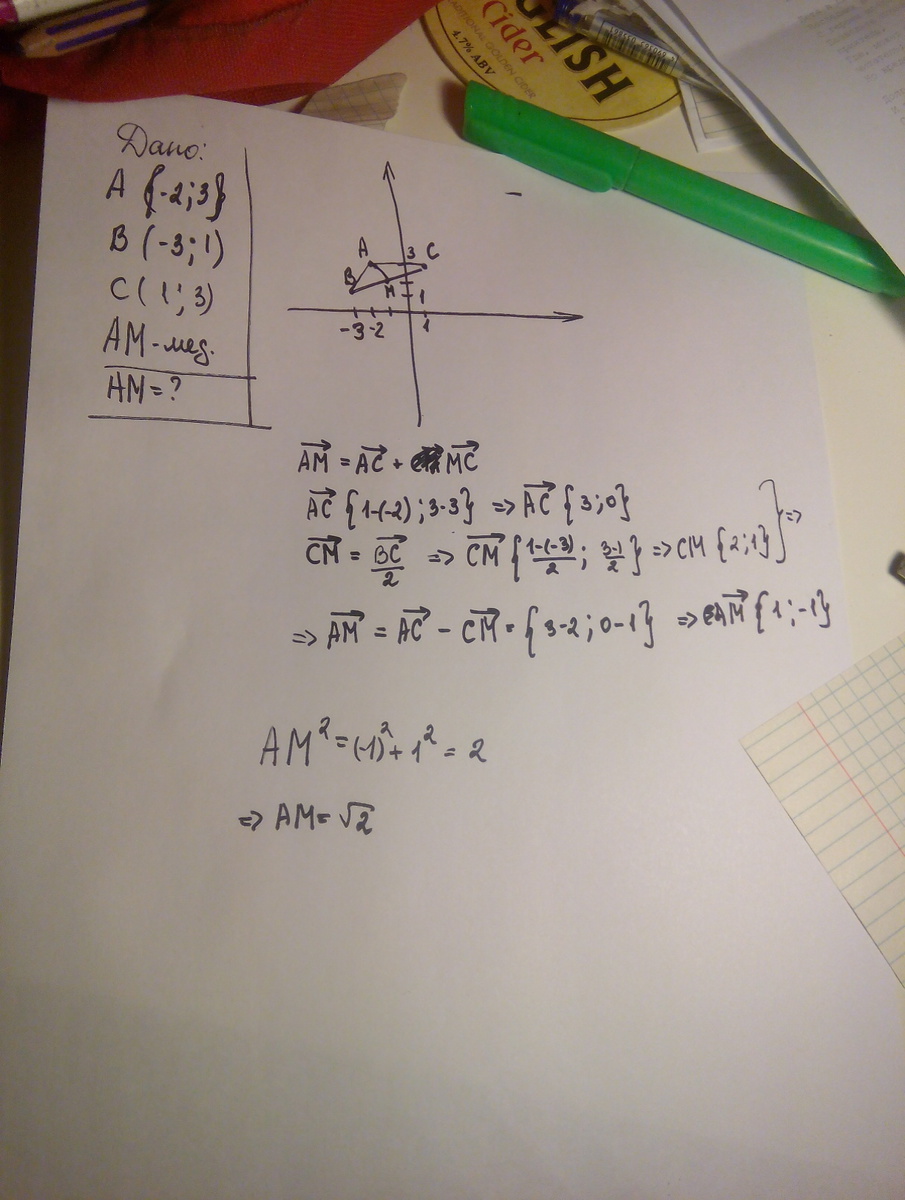 GLISH
Cider
TRADITIONAL GOLDEN CIDER
4.7% ABV
Дано:
A {-2;3}
B (-3;1)
C (1;3)
AM-мед.
AM=?
A 3 C
B M 1
-3 -2 1
AM = AC + MC
AC {1-(-2);3-3} => AC {3;0}
CM = BC/2 => CM {1-(-3)/2; 3-1/2} => CM {2;1} } =>
=> AM = AC - CM = {3-2;0-1} => AM {1;-1}
AM² = (-1)² + 1² = 2
=> AM = √2